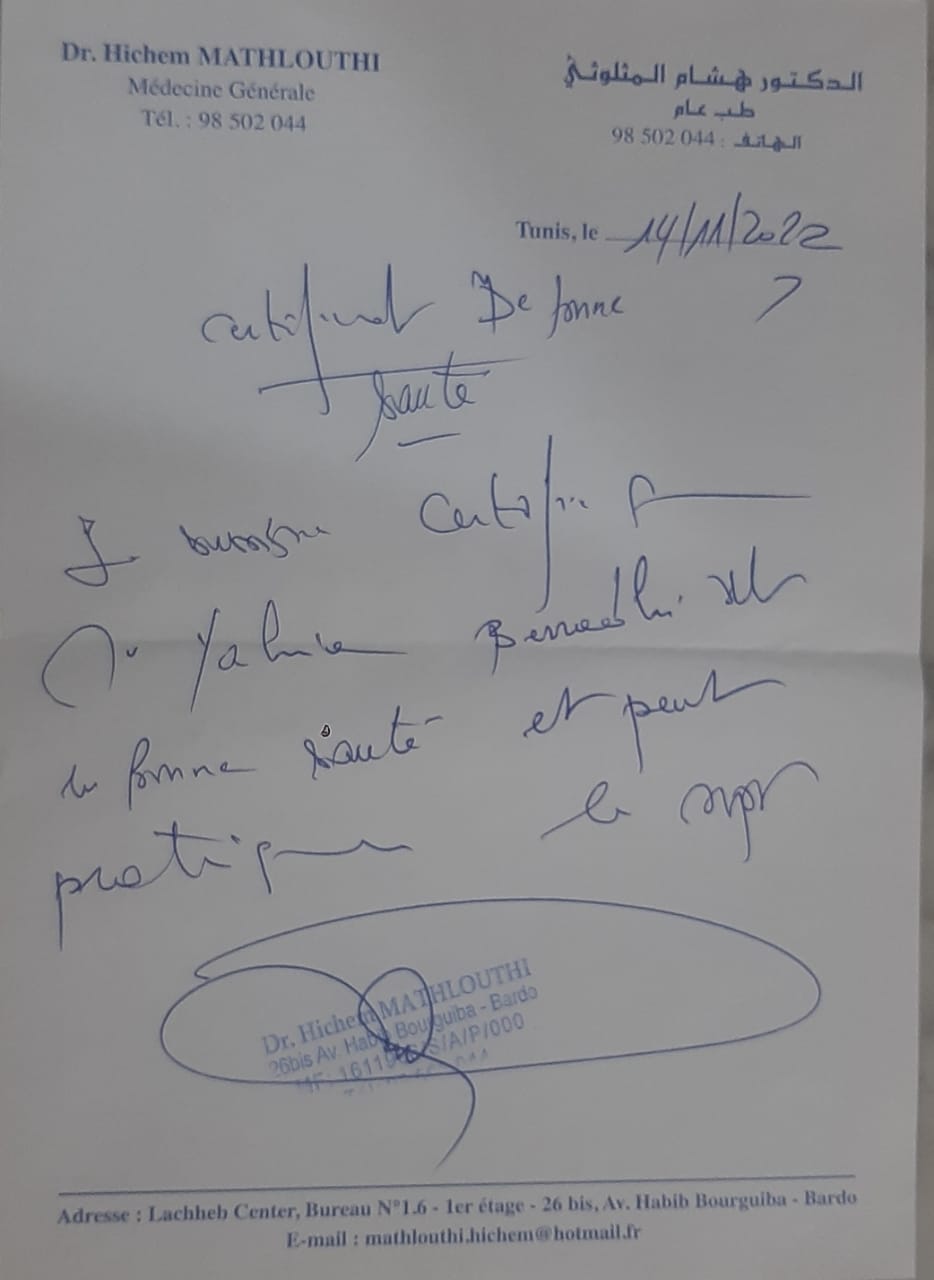 Dr. Hichem MATHLOUTHI
Médecine Générale
Tél. : 98 502 044
الدكتور هشام المثلوثي
طب عام
الهاتف : 98 502 044
Tunis, le 14/11/2022
Certificat De bonne
santé
Je soussigné Certifie
Yahia est
de bonne santé et peut
pratiquer le sport
Dr. Hichem MATHLOUTHI
26bis Av. Habib Bourguiba - Bardo
/A/P/000
Adresse : Lachheb Center, Bureau N°1.6 - 1er étage - 26 bis, Av. Habib Bourguiba - Bardo
E-mail : mathlouthi.hichem@hotmail.fr